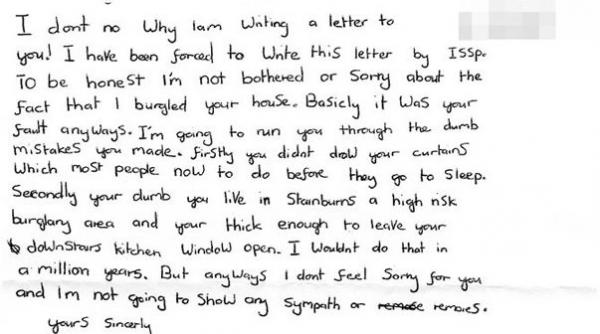 I dont no Why Iam Writing a letter to
you! I have been forced to Write this letter by ISSP.
To be honest I'm not bothered or Sorry about the
fact that I burgled your house. Basicly it was your
fault anyways. I'm going to run you through the dumb
mistakes you made. firstly you didnt draw your curtains
Which most people now to do before they go to Sleep.
Secondly your dumb you live in Stainburns a high risk
burglary area and your thick enough to leave your
downstairs kitchen Window open. I Wouldnt do that in
a million years. But anyways I dont feel Sorry for you
and Im not going to Show any Sympath or remorse remores.
yours Sincerly